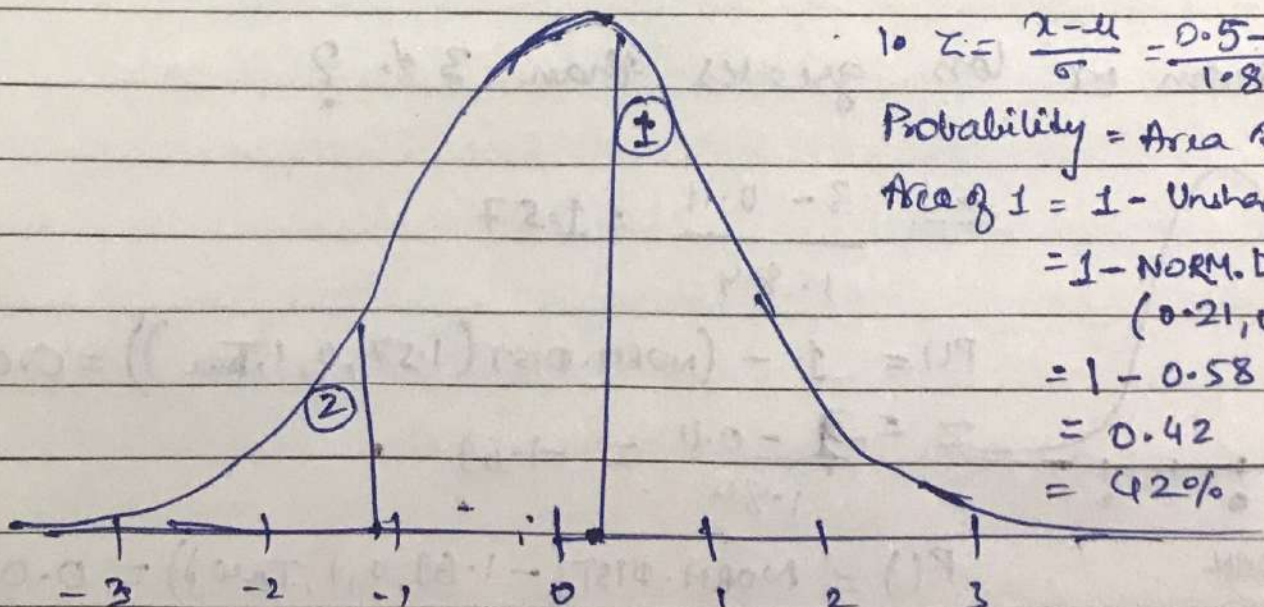 1. Z = x-μ/σ = 0.5-/1.8
Probability = Area
①
Area of 1 = 1 - Unsha
= 1 - NORM. D
(0.21,
= 1 - 0.58
②
= 0.42
= 42%
-3 -2 -1 0 1 2 3